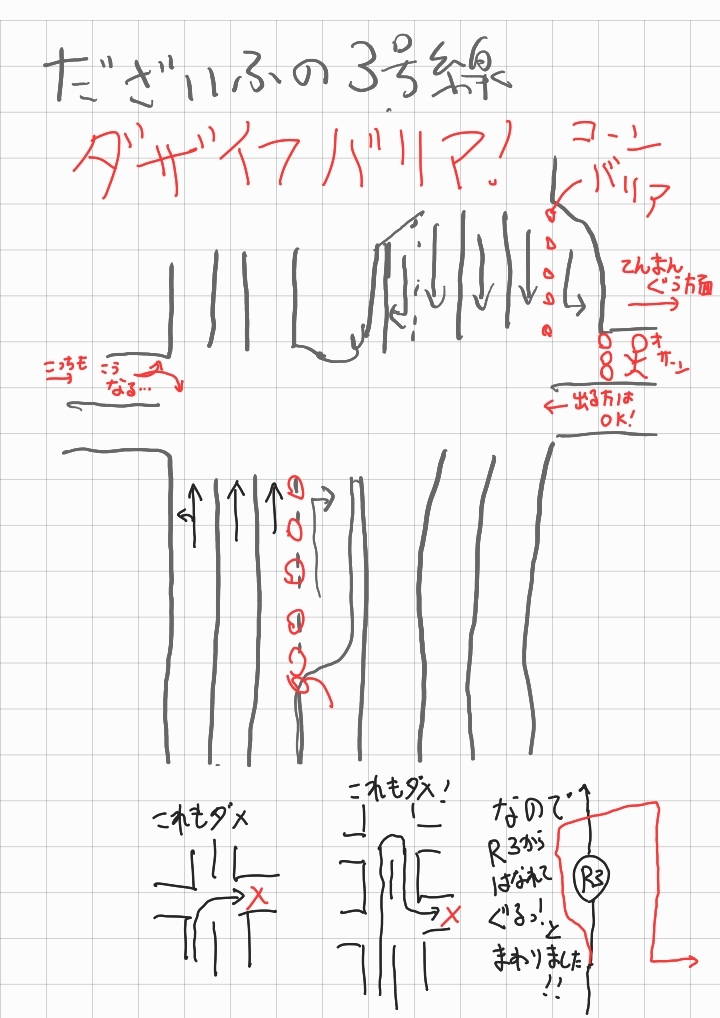 だざいふの3号線
ダザイフバリア!
コーン
バリア
てんまん
ぐう方面
オ
サーン
こっちも
こう
なる…
出る方は
OK!
これもダメ
X
これもダメ!
X
なので
R3から
はなれて
ぐるっ!と
まわりました
!!
R3